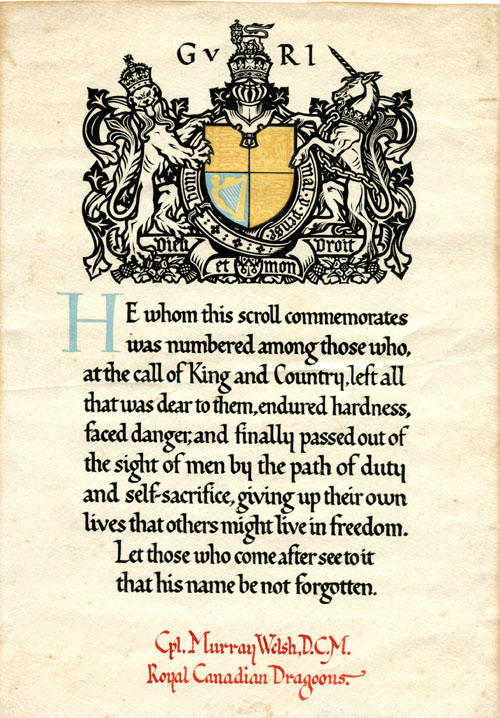 GV RI
Honi soit qui mal y pense
Dieu et mon Droit
HE whom this scroll commemorates
was numbered among those who,
at the call of King and Country, left all
that was dear to them, endured hardness,
faced danger, and finally passed out of
the sight of men by the path of duty
and self-sacrifice, giving up their own
lives that others might live in freedom.
Let those who come after see to it
that his name be not forgotten.
Cpl. Murray Welsh, D.C.M.
Royal Canadian Dragoons.